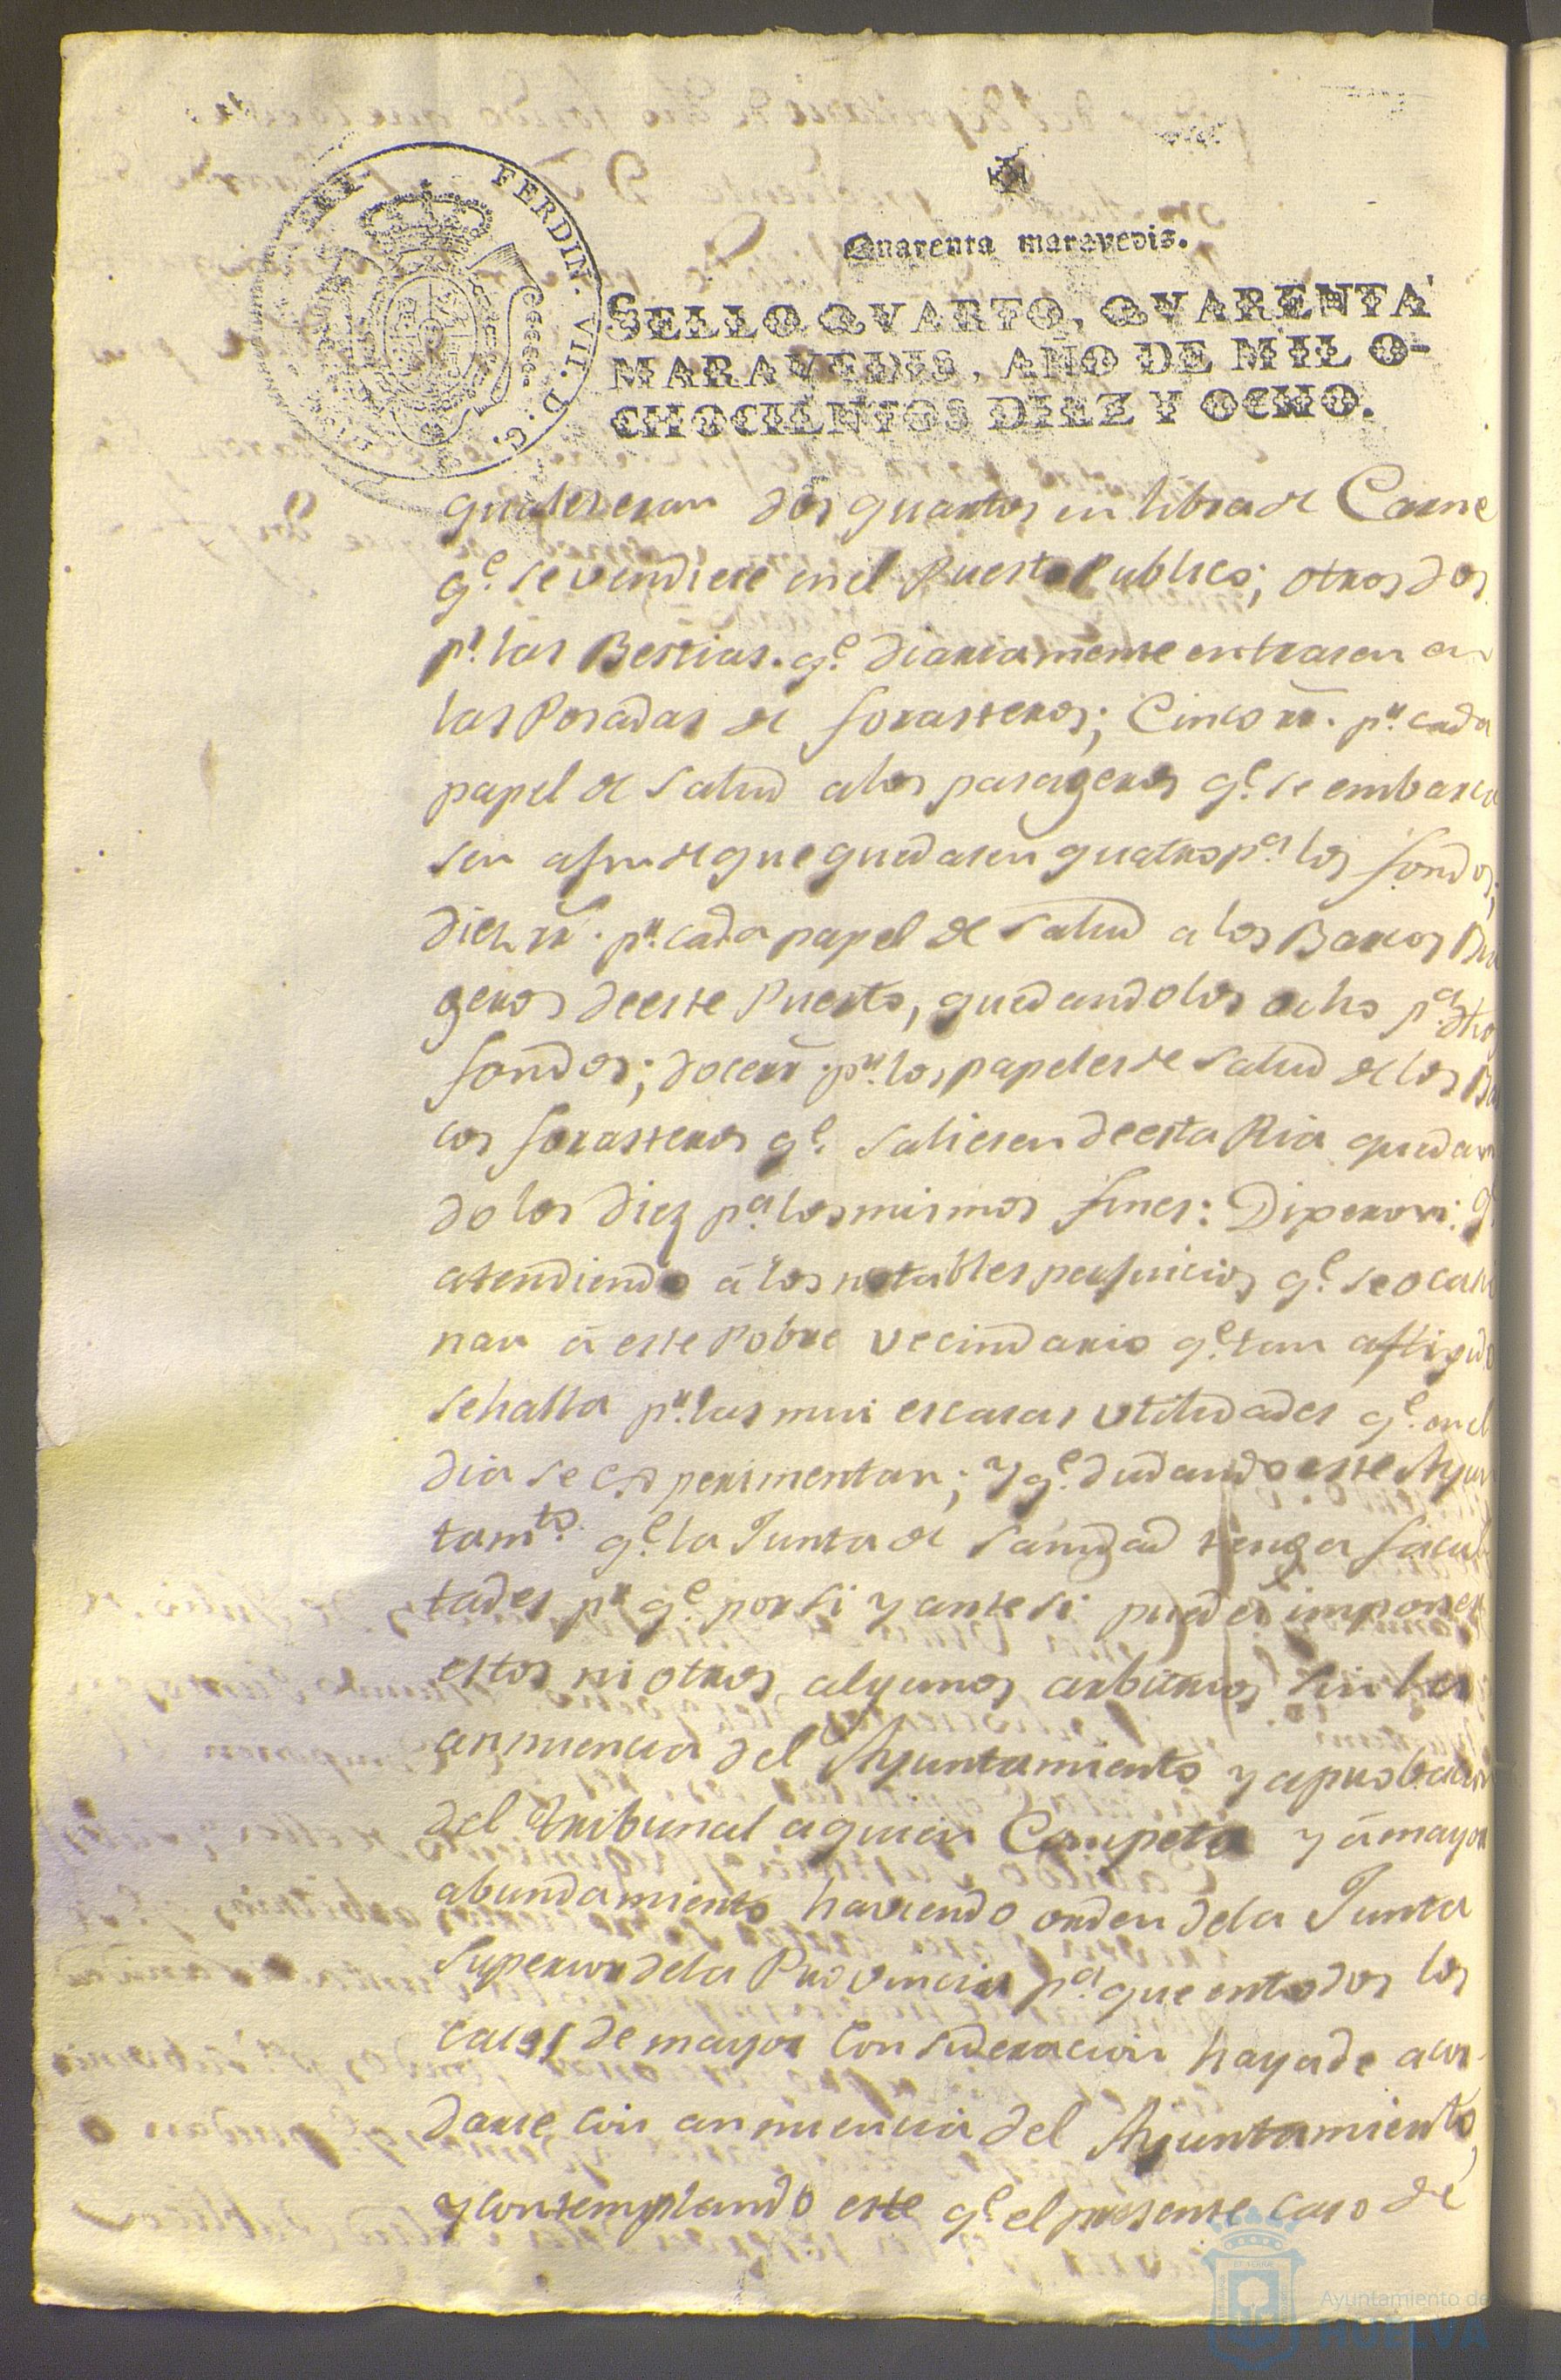 FERDIN. VII. D. G.
Quarenta maravedis.
SELLO QVARTO, QVARENTA
MARAVEDIS, AÑO DE MIL O-
CHOCIENTOS DIEZ Y OCHO.
quales eran dos quartos en libra de Carne
q.e se vendiere en el Puesto Publico; otros dos
p.r las Bestias q.e diariamente entrasen en
las Posadas de forasteros; Cinco rr. p.r cada
papel de Salud a los pasageros q.e se embarca
sen a fin de que quedasen quatro p.a los fondos;
diez rr. p.r cada papel de Salud a los Barcos
geros de este Puerto, quedando los ocho p.a dhos
fondos; doce rr. p.r los papeles de Salud de los Bar
cos forasteros q.e saliesen de esta Ria quedan
do los diez p.a los mismos fines: Dixeron: q.e
atendiendo á los notables perjuicios q.e se ocasio
nan á este Pobre vecindario q.e tan afligido
se halla p.r las mui escasas utilidades q.e en el
dia se experimentan; y q.e dudando este Ayun
tam.to q.e la Junta de Sanidad tenga facul
tades p.a q.e por si y ante si pueda imponer
estos ni otros algunos arbitrios sin la
annuencia del Ayuntamiento y aprobacion
del Tribunal a quien Competa y á mayor
abundamiento haviendo orden de la Junta
Superior de la Provincia p.a que en todos los
casos de mayor Consideracion haya de acor-
darse con annuencia del Ayuntamiento,
y contemplando este q.e el presente caso de
Ayuntamiento de
HUELVA